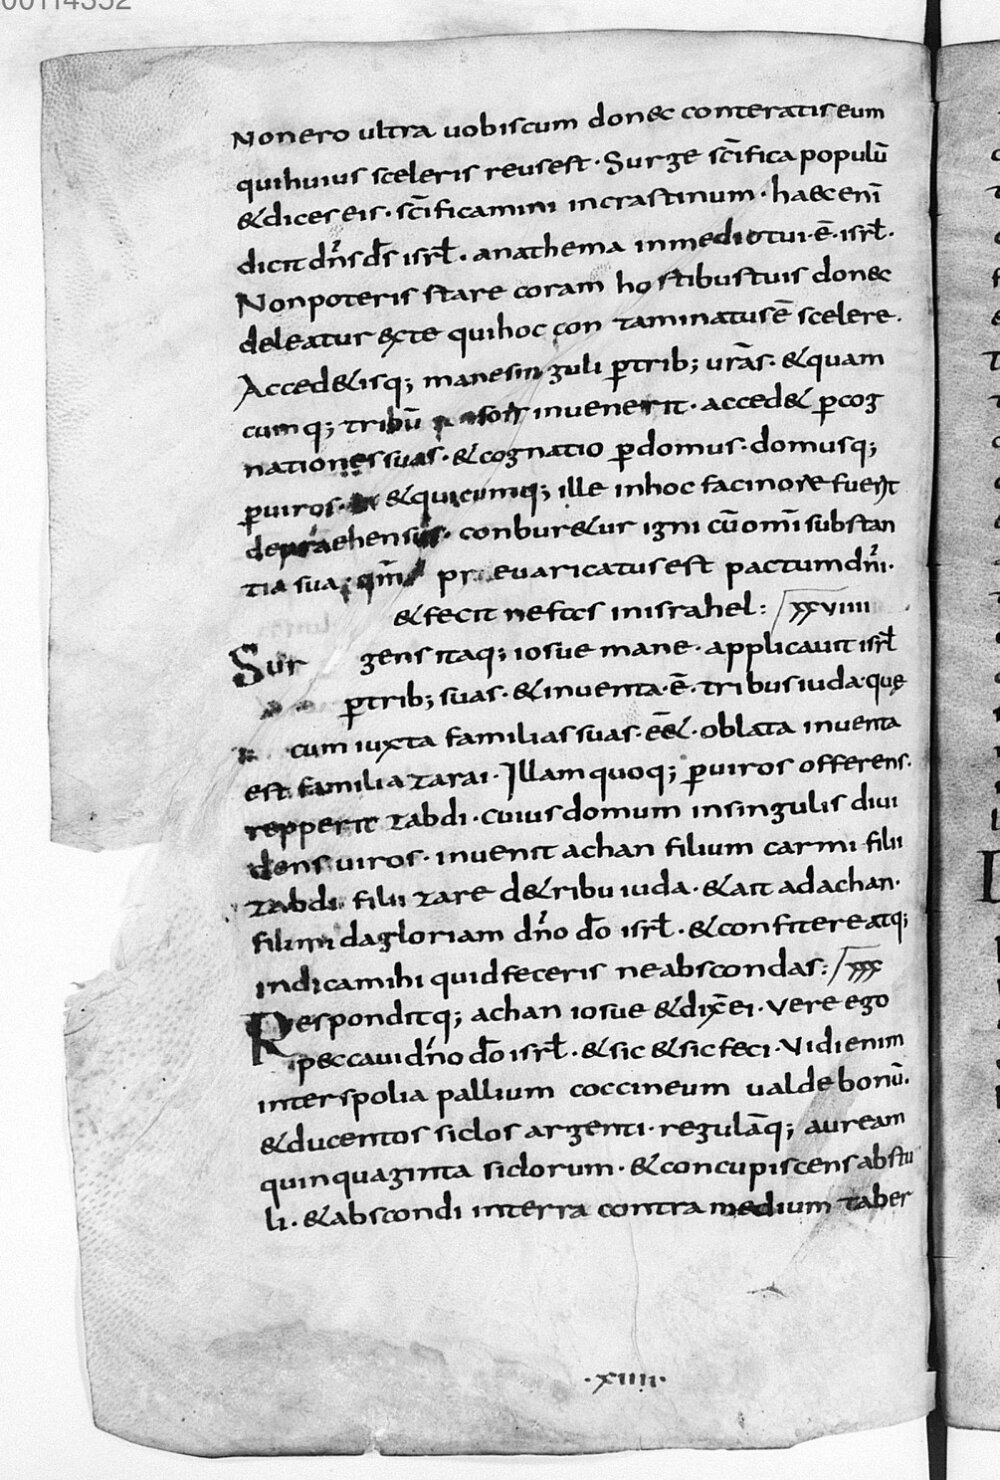 00114352
Nonero ultra uobiscum donec conteratis eum
quihuius sceleris reusest · Surge scīfica populū
& dices eis · scīficamini incrastinum · haec enī
dicit dn̄s ds̄ isrł · anathema inmediotui · ē · isrł ·
Nonpoteris stare coram hostibustuis donec
deleatur exte quihoc contaminatus ē scelere ·
Acced&isq; mane singuli ꝑtrib; urās · & quam
cumq; tribū sors inuenerit · acced& ꝑcog
nationes suas · & cognatio ꝑdomus · domusq;
ꝑuiros · & quicumq; ille inhoc facinore fuerit
depraehensus · conbur&ur igni cū omī substan
tia sua · qm̄ praeuaricatusest pactum dn̄i ·
& fecit nefas inisrahel : xxviiii
Surgens itaq; iosue mane · applicauit isrł
ꝑtrib; suas · & inuenta · ē · tribus iuda · quę
cum iuxta familias suas · ēē& · oblata inuenta
est familia zarai · Illam quoq; ꝑuiros offerens ·
repperit zabdi · cuius domum insingulis diui
dens uiros · inuenit achan filium carmi filii
zabdi filii zare d&ribu iuda · & ait adachan ·
fili mi dagloriam dn̄o dō isrł · & confitere atq;
indicamihi quidfeceris neabscondas : xxx
Responditq; achan iosue & dix̄ ei · vere ego
peccaui dn̄o dō isrł · & sic & sic feci · Vidi enim
interspolia pallium coccineum ualde bonū ·
& ducentos siclos argenti · regulāq; auream
quinquaginta siclorum · & concupiscens abstu
li · & abscondi interra contra medium taber
· xiiii ·